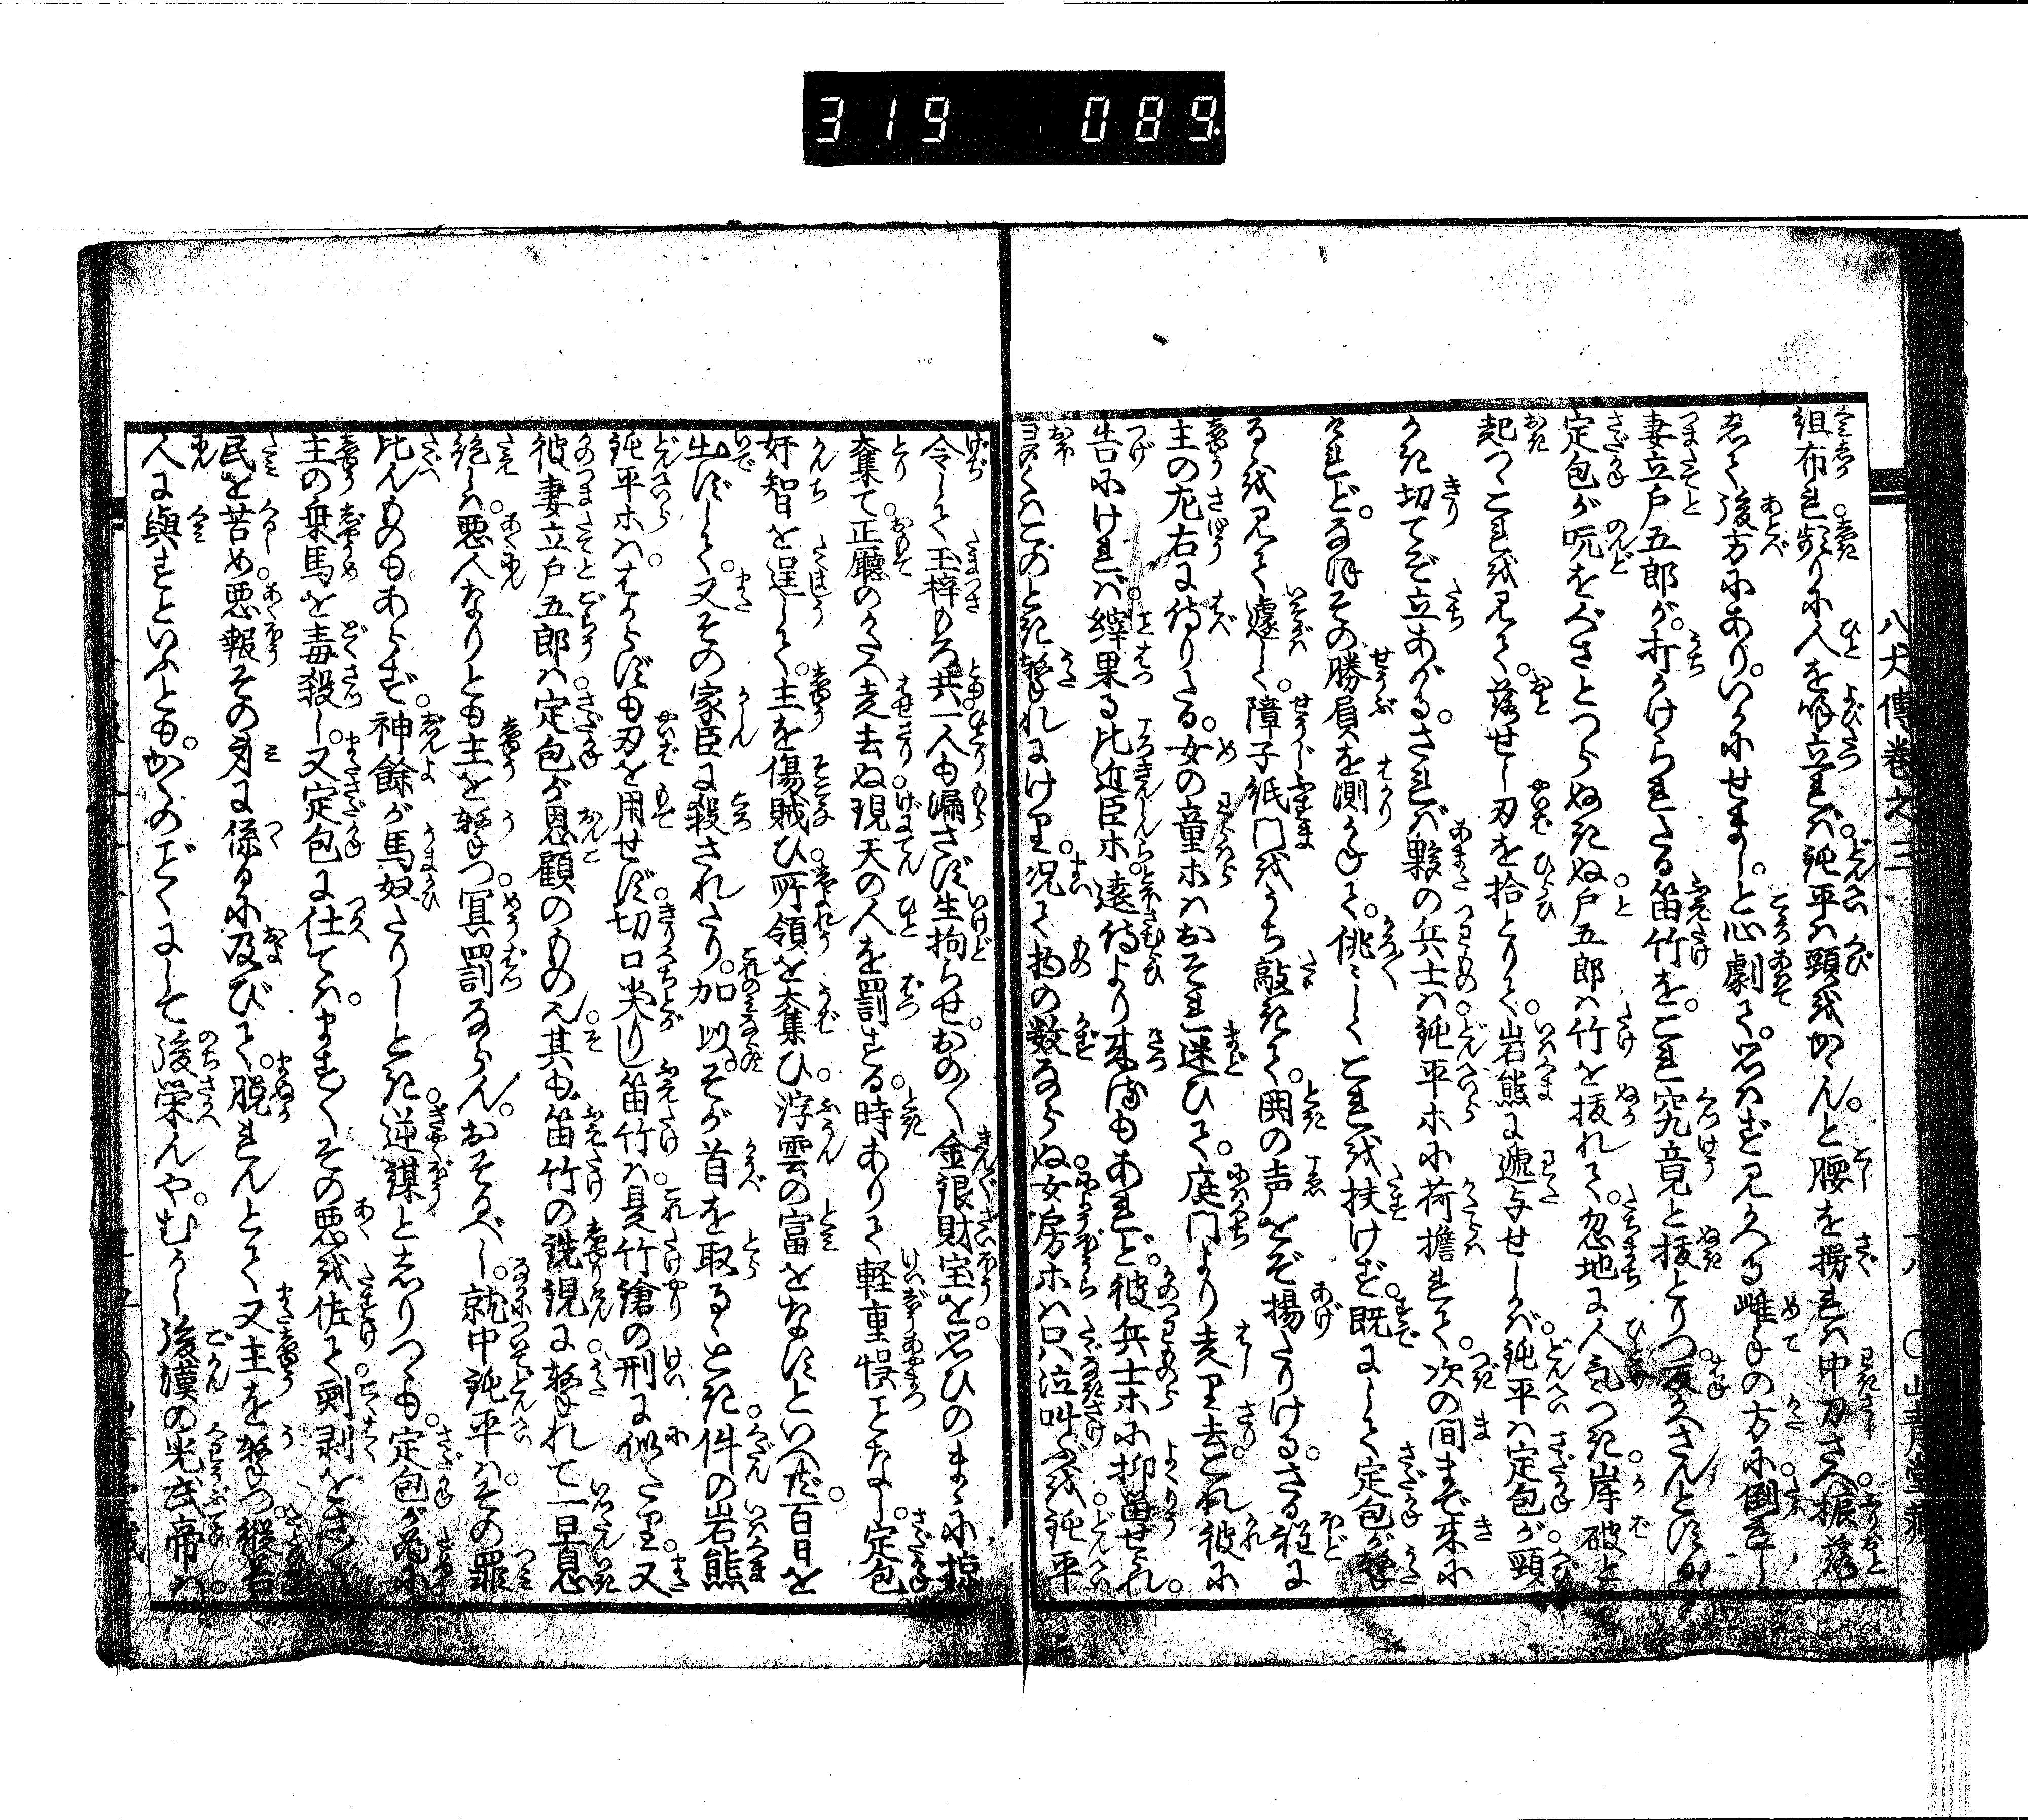 319 089
八犬傳巻之三
組布れ。頻りに人を呼立れば。鈍平は頸をかゝんと。腰を撈れば中刀さへ。振落
して後方にあり。いかにせまし。と心劇て。思はず見かへる雌手の方に。倒れし
妻立戸五郎が。打かけられたる笛竹を。これ究竟と抜とりつ。反かへさんとするが
定包が吭をぐさとつらぬきぬ。戸五郎は竹を抜れて。忽地に人気つき。岸破と
起つゝこれを見て。落せし刃を拾とりて。岩熊に遞与せしかば。鈍平は定包が頸
かき切てぞ立あがる。されば夥の兵士は。鈍平ホに荷擔れて。次の間まで来に
けれど。なほその勝負を測かねて。佻々しくこれを扶けず。既にして定包が撃
るゝを見て。遽しく障子紙門をうち敲きて。鬨の声をぞ揚たりける。さる程に
主の左右に侍りたる。女の童ホはおそれ迷ひて。庭門より走り去。これ彼に
告にければ。縡果る比近臣ホ。遠侍より来るもあれど。彼兵士ホに抑留せられ。
悉くこのとき撃れにけり。況て物の数ならぬ女房ホは只泣叫ぶを鈍平
令して。玉梓もろ共一人も漏さず生拘らせ。おの〳〵金銀財宝を。思ひのまゝに掠
奪て。正廳のかたへ走去ぬ。現天の人を罰する。時ありて軽重悞ことなし。定包
奸智を逞して。主を傷賊ひ所領を奪ひ。浮雲の富をなすといへど。百日を
出ずして。又その家臣に殺されたり。加以。そが首を取るゝとき。件の岩熊
鈍平ホは。はからずも刃を用せず。切口尖りし笛竹は。是竹鎗の刑に似たり。又
彼妻立戸五郎は。定包が恩顧のもの也。其も笛竹の銃鋧に撃れて。一旦息
絶しは。悪人なりとも主を撃つ。冥罰ならん。おそるべし。就中鈍平は。その罪
比んものもあらず。神餘が馬奴たりしとき。逆謀としりつゝも。定包が為に
主の乗馬を毒殺し。又定包に仕ては。ますますその悪を佐て。剥剥をさ〳〵
民を苦め。悪報その身に係るに及びて。脱れんとて又主を撃つ。縦君
人に與すといふとも。かくのごとくにして後栄んや。むかし後漢の光武帝は。